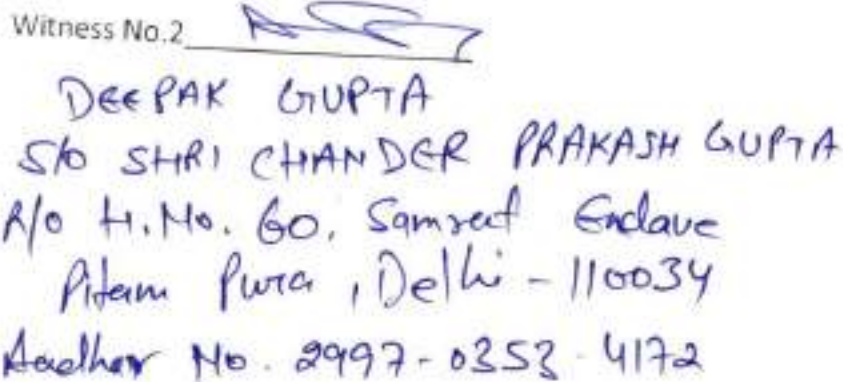 Witness No.2
DEEPAK GUPTA
S/o SHRI CHANDER PRAKASH GUPTA
R/o H.No. 60, Samrat Enclave
Pitam Pura, Delhi - 110034
Aadhar No. 2997-0353-4172